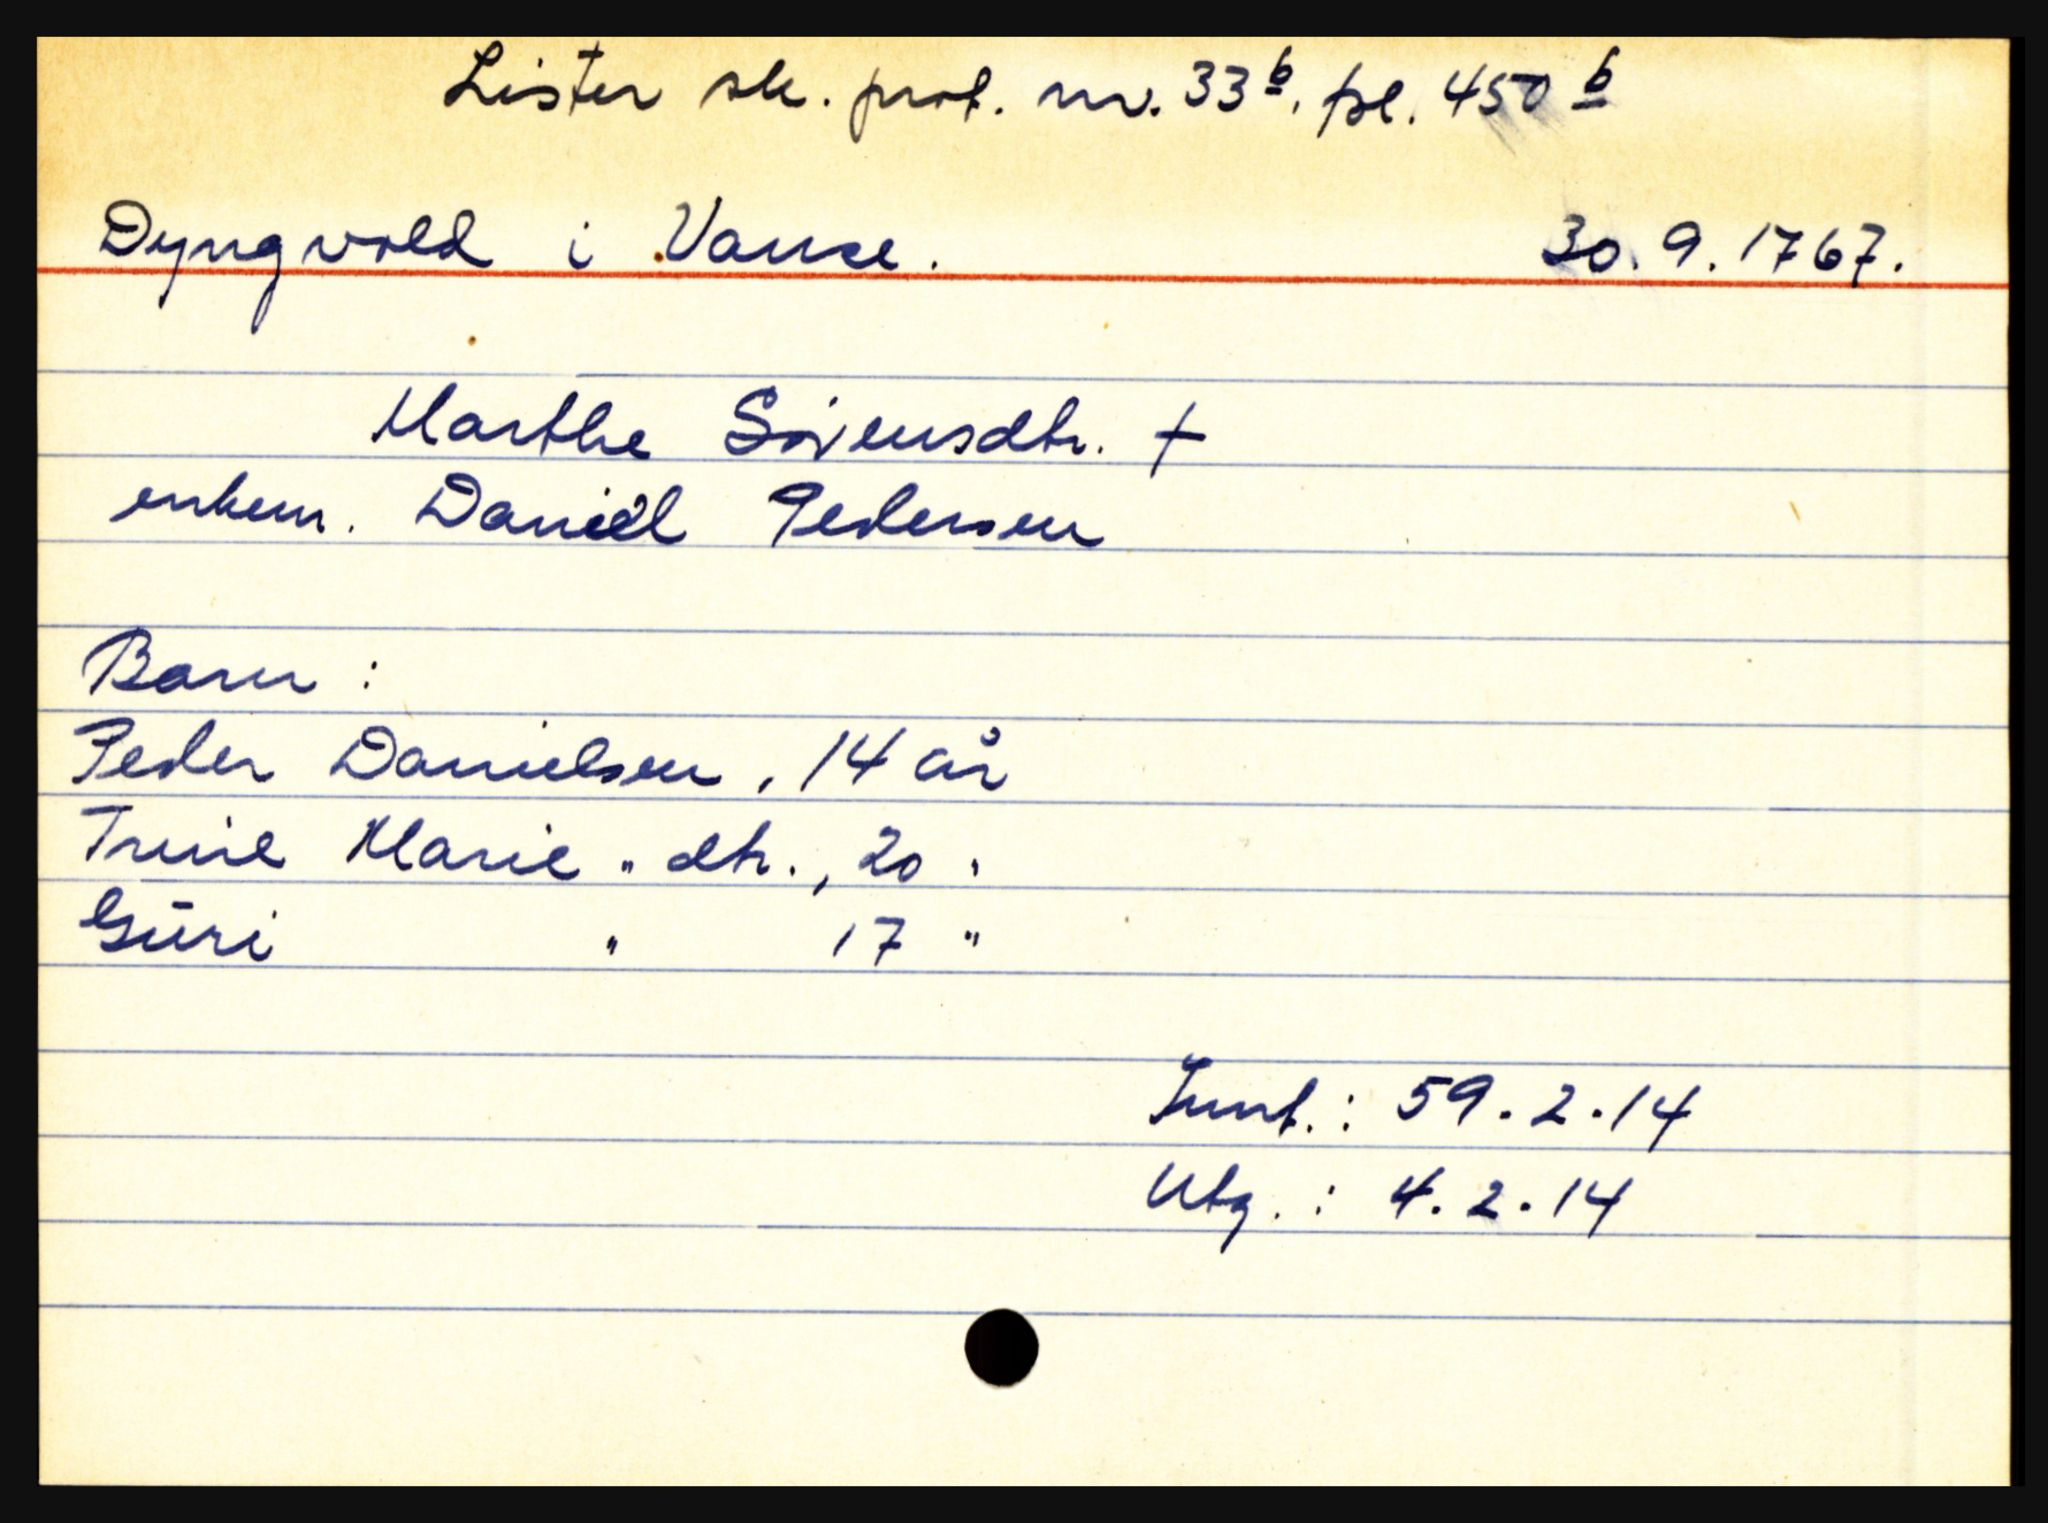 Lister sk. prot. nr. 33b, fol. 450 b
Dyngvold i Vanse. 30.9.1767.
Marthe Sørensdtr. †
enkem. Daniel Pedersen
Barn :
Peder Danielsen, 14 år
Trine Marie " dtr., 20 "
Guri " 17 "
Innt. : 59.2.14
Utg. : 4.2.14